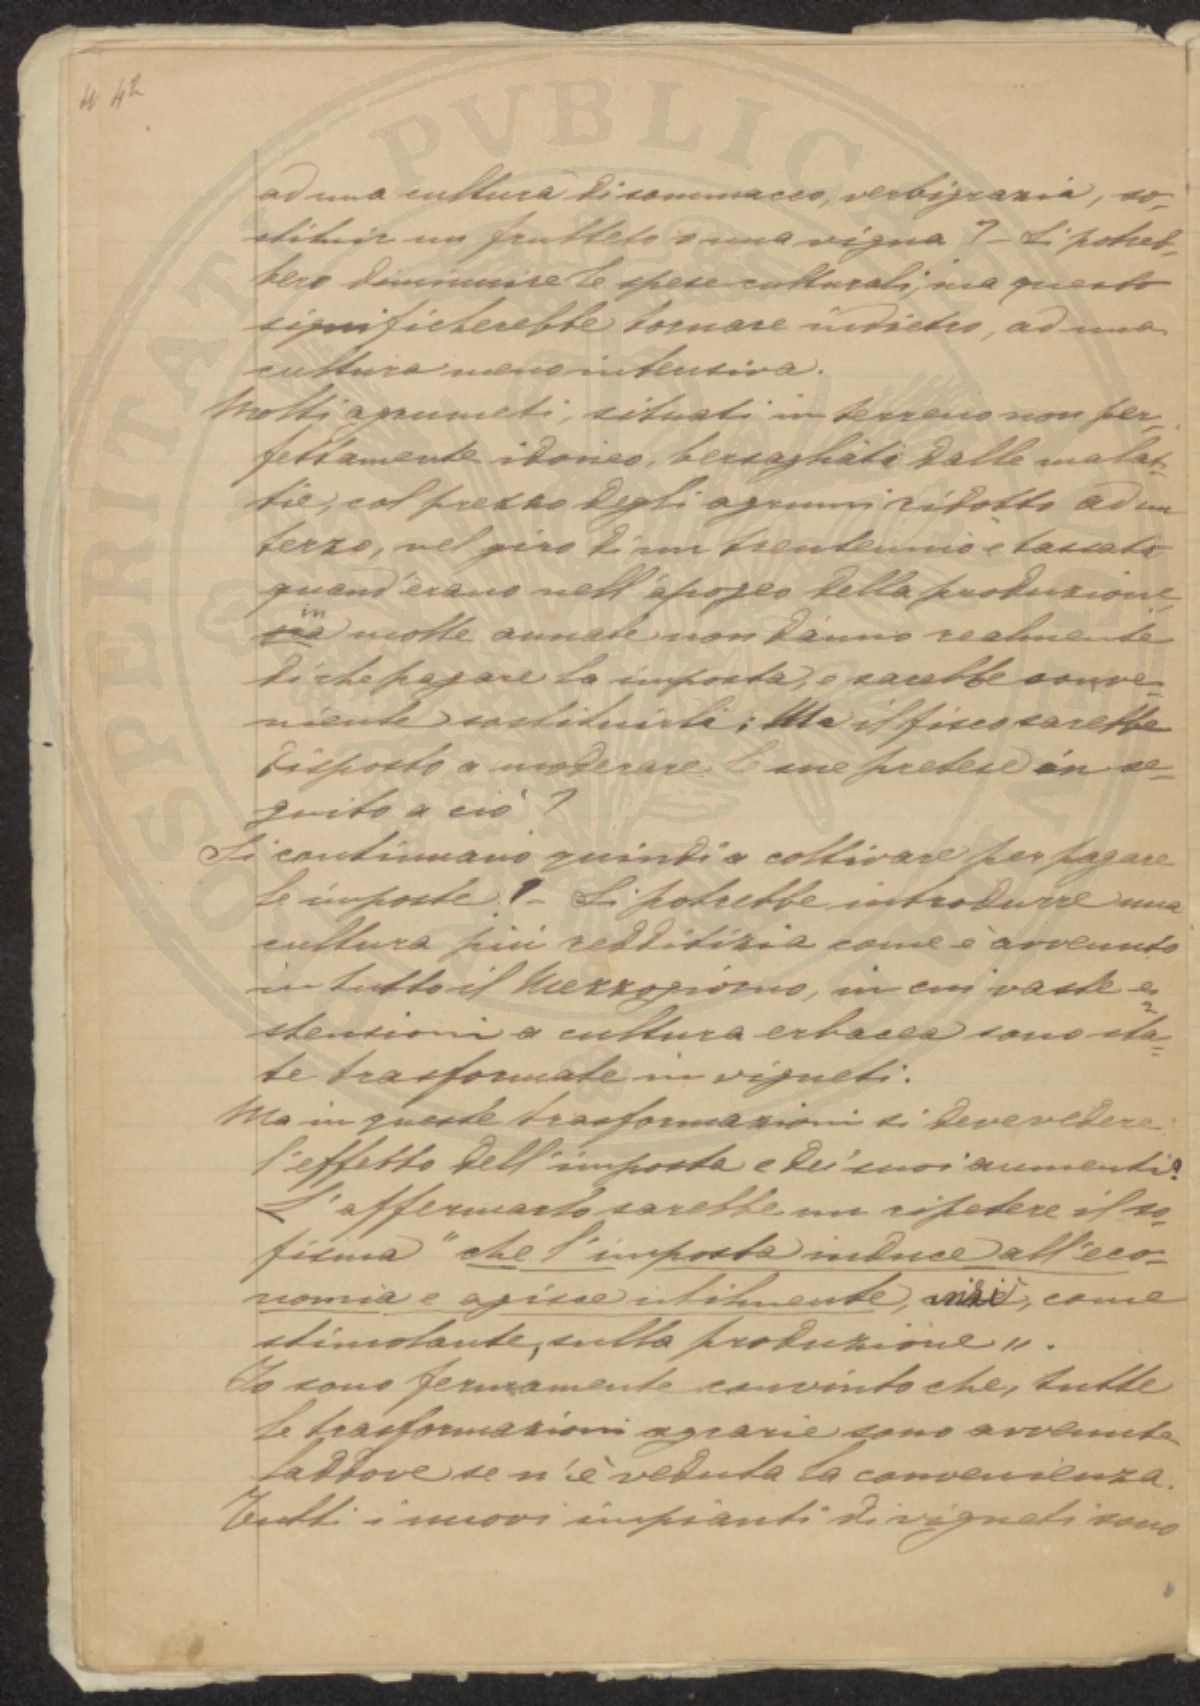 42
ad una cultura di sommacco, verbigrazia, so-
stituir un frutteto o una vigna? - Si potreb-
bero diminuire le spese culturali; ma questo
significherebbe tornare indietro, ad una
cultura meno intensiva.
Molti agrumeti, situati in terreno non per-
fettamente idoneo, bersagliati dalle malat-
tie, col prezzo degli agrumi ridotto ad un
terzo, nel giro di un trentennio e tassati
quand'erano nell'apogeo della produzione,
in
molte annate non dànno realmente
di che pagare la imposta, e sarebbe conve-
niente sostituirli; Ma il fisco sarebbe
disposto a moderare le sue pretese in se-
guito a ciò?
Si continuano quindi a coltivare per pagare
le imposte! - Si potrebbe introdurre una
cultura più redditizia come è avvenuto
in tutto il Mezzogiorno, in cui vaste e-
stensioni a cultura erbacea sono sta-
te trasformate in vigneti.
Ma in queste trasformazioni si deve vedere
l'effetto dell'imposta e de' suoi aumenti?
L'affermarlo sarebbe un ripetere il so-
fisma "che l'imposta induce all'eco-
nomia e agisce utilmente, come
stimolante, sulla produzione".
Io sono fermamente convinto che, tutte
le trasformazioni agrarie sono avvenute
laddove se n'è veduta la convenienza.
Tutti i nuovi impianti di vigneti sono
PERITATI PVBLICAE